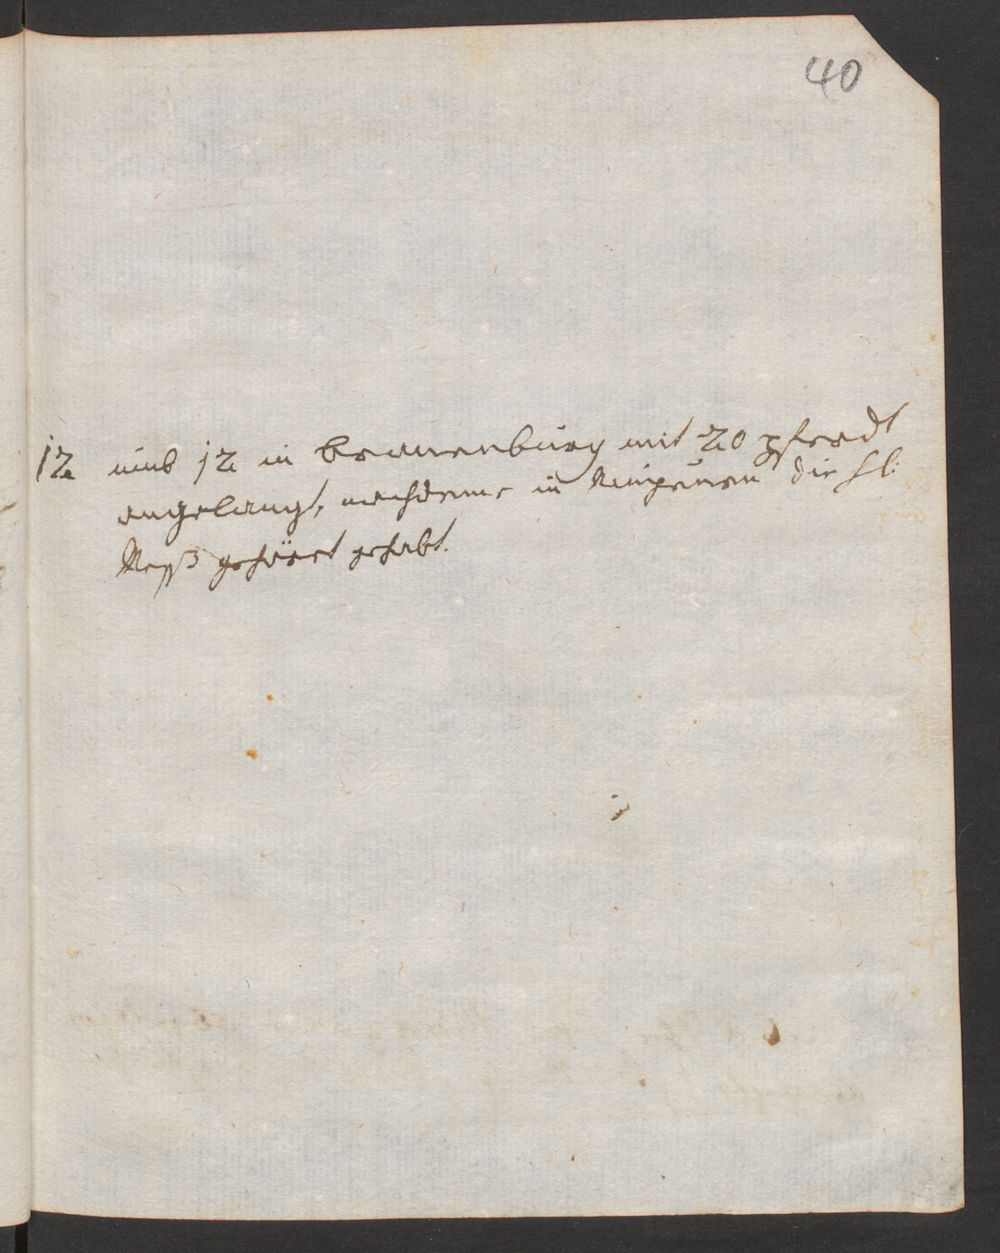 40
12 umb 12 in Cranenburg mit 20 pferdt
angelangt, nachdeme in die hl:
Meß gehöret gehabt.